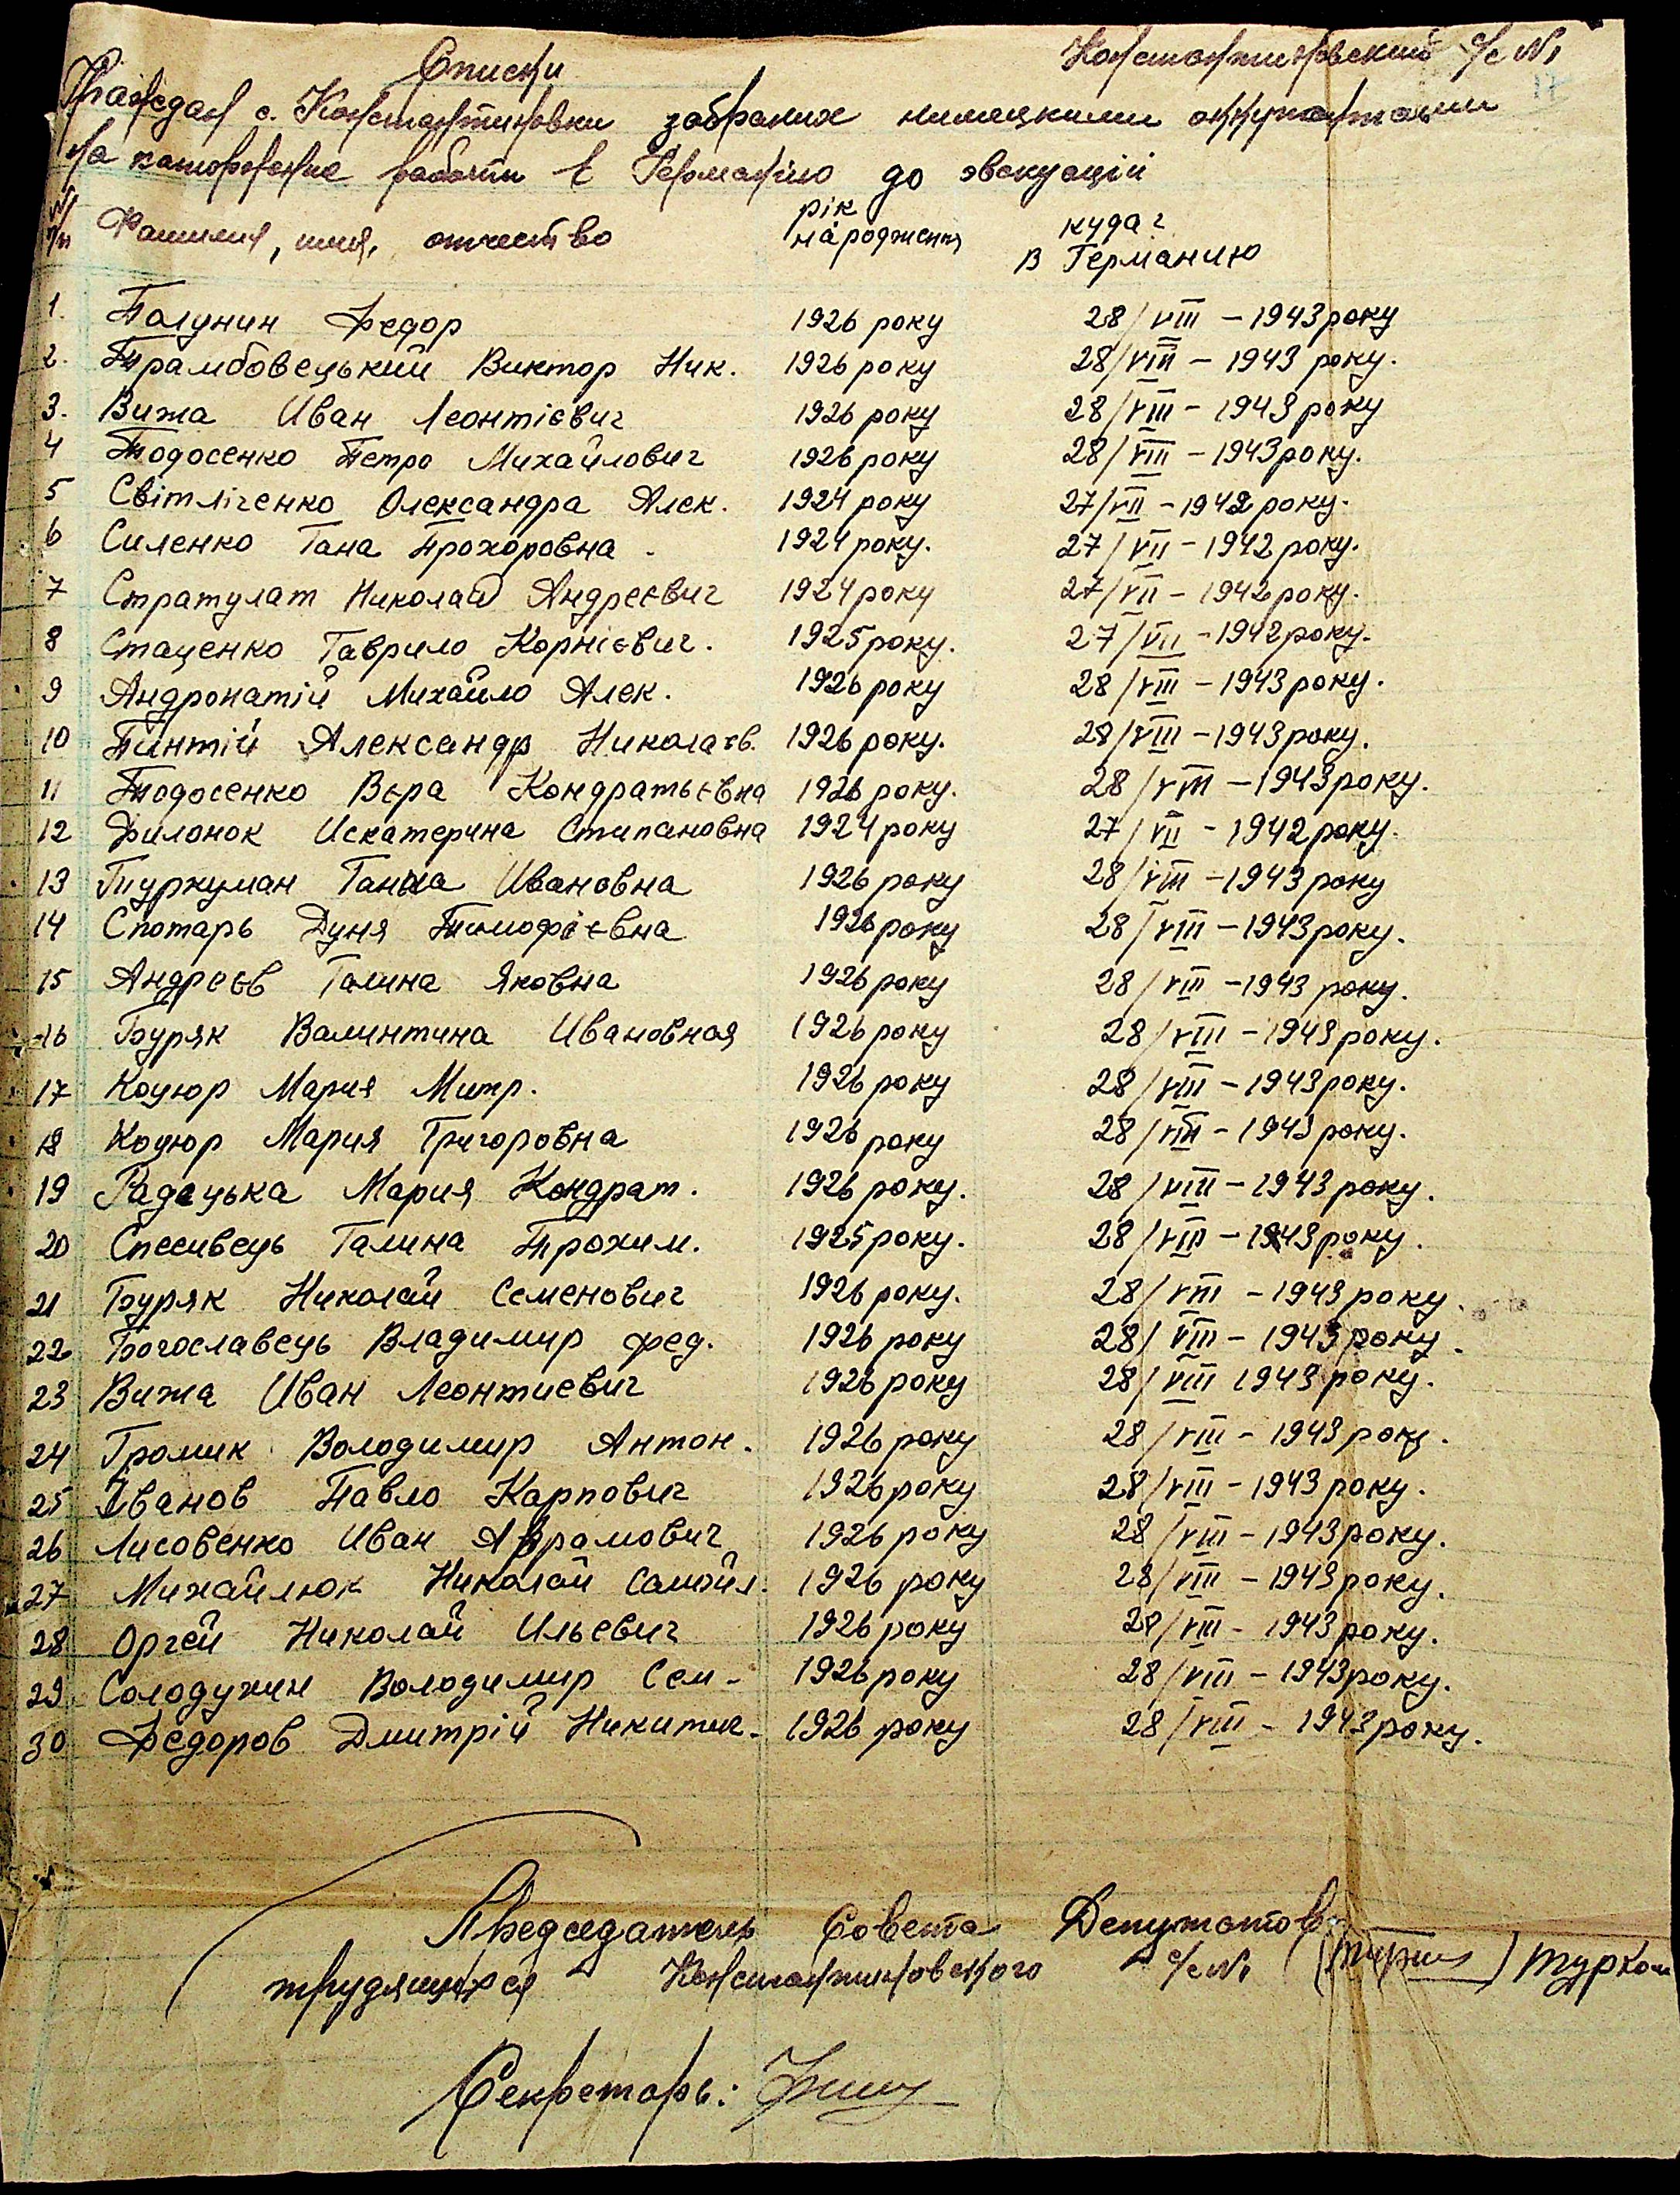 Списки Константиновский с/с №1
17
Граждан с. Константиновки забраних нимецкими оккупантами
на каторжние работи в Германию до эвакуацій
№ п/п Фамилия, имя, отчество рік народження куда? в Германию
1. Полунин Федор 1926 року 28/VIII - 1943 року
2. Трамбовецький Виктор Ник. 1926 року 28/VIII - 1943 року.
3. Вижа Иван Леонтієвич 1926 року 28/VIII - 1943 року
4 Тодосенко Петро Михайлович 1926 року 28/VIII - 1943 року.
5 Світліченко Олександра Алек. 1924 року 27/VII - 1942 року.
6 Силенко Гана Прохоровна. 1924 року. 27/VII - 1942 року.
7 Стратулат Николай Андреєвич 1924 року 27/VII - 1942 року.
8 Стаценко Гаврило Корнієвич. 1925 року. 27/VII - 1942 року.
9 Андропатій Михайло Алек. 1926 року 28/VIII - 1943 року.
10 Пинтій Александр Николаєв. 1926 року. 28/VIII - 1943 року.
11 Тодосенко Вєра Кондратьєвна 1926 року. 28/VIII - 1943 року.
12 Филонок Искатерина Стипановна 1924 року 27/VII - 1942 року.
13 Туркуман Ганна Ивановна 1926 року 28/VIII - 1943 року
14 Спотарь Дуня Тимофієвна 1926 року 28/VIII - 1943 року.
15 Андреєв Галина Яковна 1926 року 28/VIII - 1943 року.
16 Буряк Валинтина Ивановная 1926 року 28/VIII - 1943 року.
17 Коцюр Мария Митр. 1926 року 28/VIII - 1943 року.
18 Коцюр Мария Григоровна 1926 року 28/VIII - 1943 року.
19 Радецька Мария Кондрат. 1926 року. 28/VIII - 1943 року.
20 Спесивець Галина Трохим. 1925 року. 28/VIII - 1943 року.
21 Буряк Николай Семенович 1926 року. 28/VIII - 1943 року.
22 Богославець Владимир фед. 1926 року 28/VIII - 1943 року.
23 Вижа Иван Леонтиевич 1926 року 28/VIII 1943 року.
24 Громик Володимир Антон. 1926 року 28/VIII - 1943 року.
25 Іванов Павло Карпович 1926 року 28/VIII - 1943 року.
26 Лисовенко Иван Аврамович 1926 року 28/VIII - 1943 року.
27 Михайлюк Николай Самойл. 1926 року 28/VIII - 1943 року.
28 Оргей Николай Ильевич 1926 року 28/VIII - 1943 року.
29 Солодухин Володимир Сем- 1926 року 28/VIII - 1943 року.
30 Федоров Дмитрій Никитич. 1926 року 28/VIII - 1943 року.
Председатель Совета Депутатов
трудящихся Константиновского с/с №1 Турком
Секретарь: